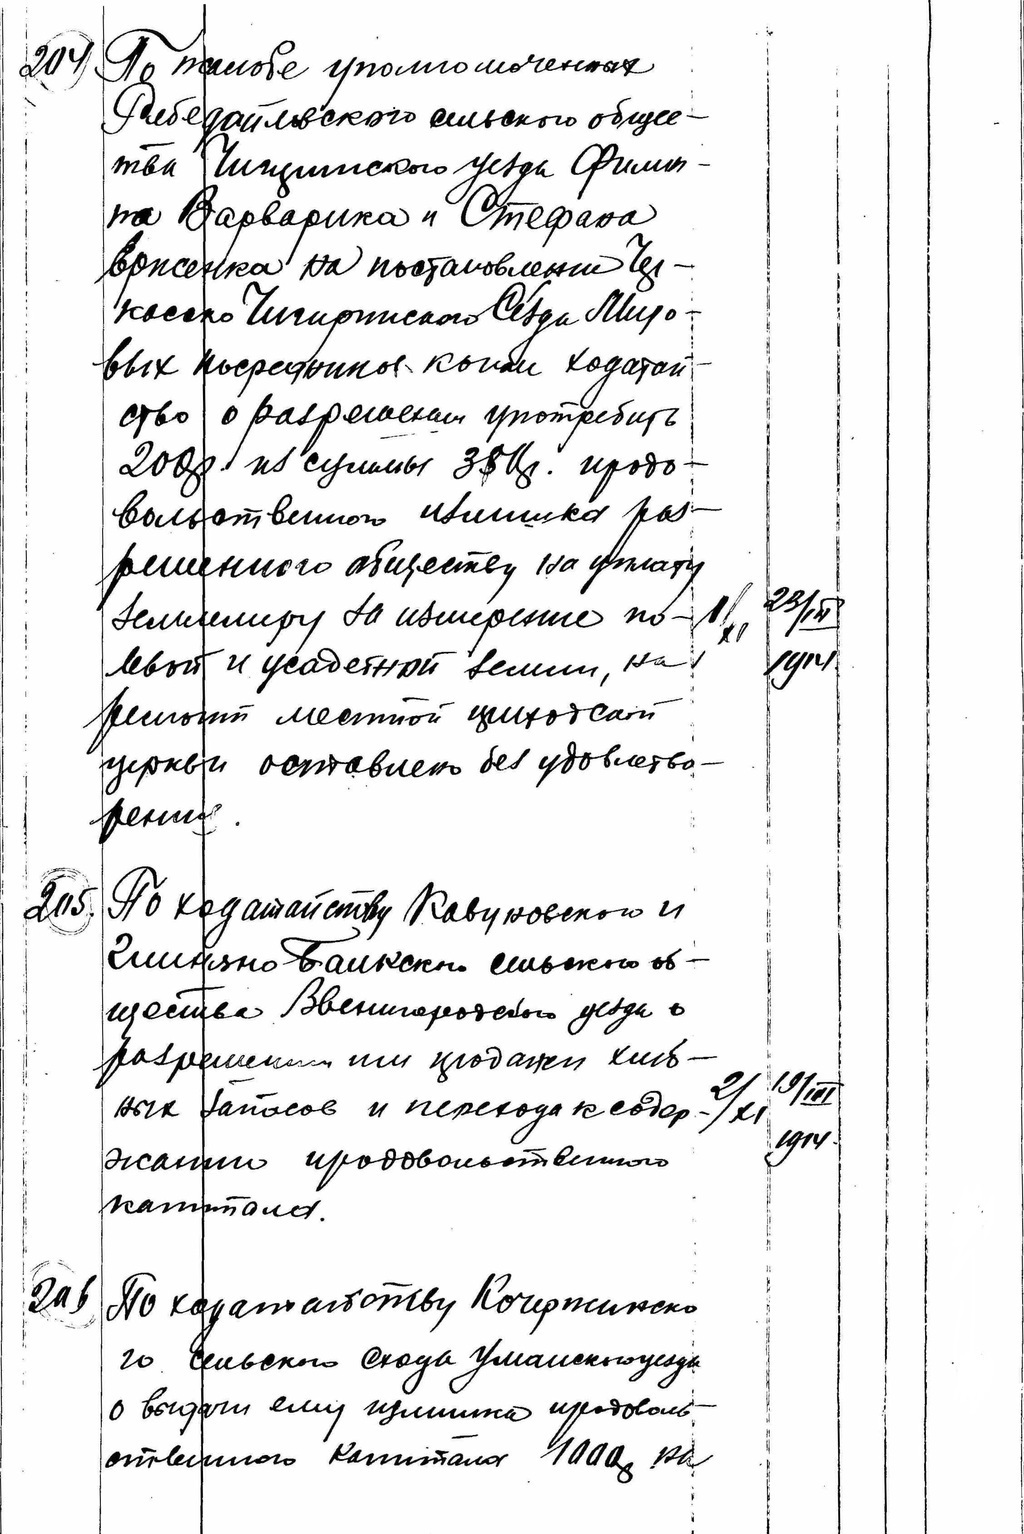 204) По жалобе уполномоченных
Ребедайловского сельского общес-
тва Чигиринского уезда Филип-
па Варварика и Стефана
на постановление Чер-
касско Чигиринского Съезда Миро-
вых посредников коим ходатай-
ство о разрешении употребить
200р. из суммы 381р. продо-
вольственного излишка раз-
решенного обществу на уплату
землемеру за измерение по-
левой и усадебной земли, на
ремонт местной приходской
церкви оставлено без удовлетво-
рения.
1/XI 23/III 1914
205. По ходатайству Кавуновского и
Глиняно Балкского сельского об-
щества Звенигородского уезда о
разрешении им продажи хлеб-
ных запасов и перехода к содер-
жанию продовольственного
капитала.
2/XI 19/III 1914
206 По ходатайству Кочержинско
го сельского схода Уманского уезда
о выдачи ему излишка продоволь
ственного капитала 1000р на